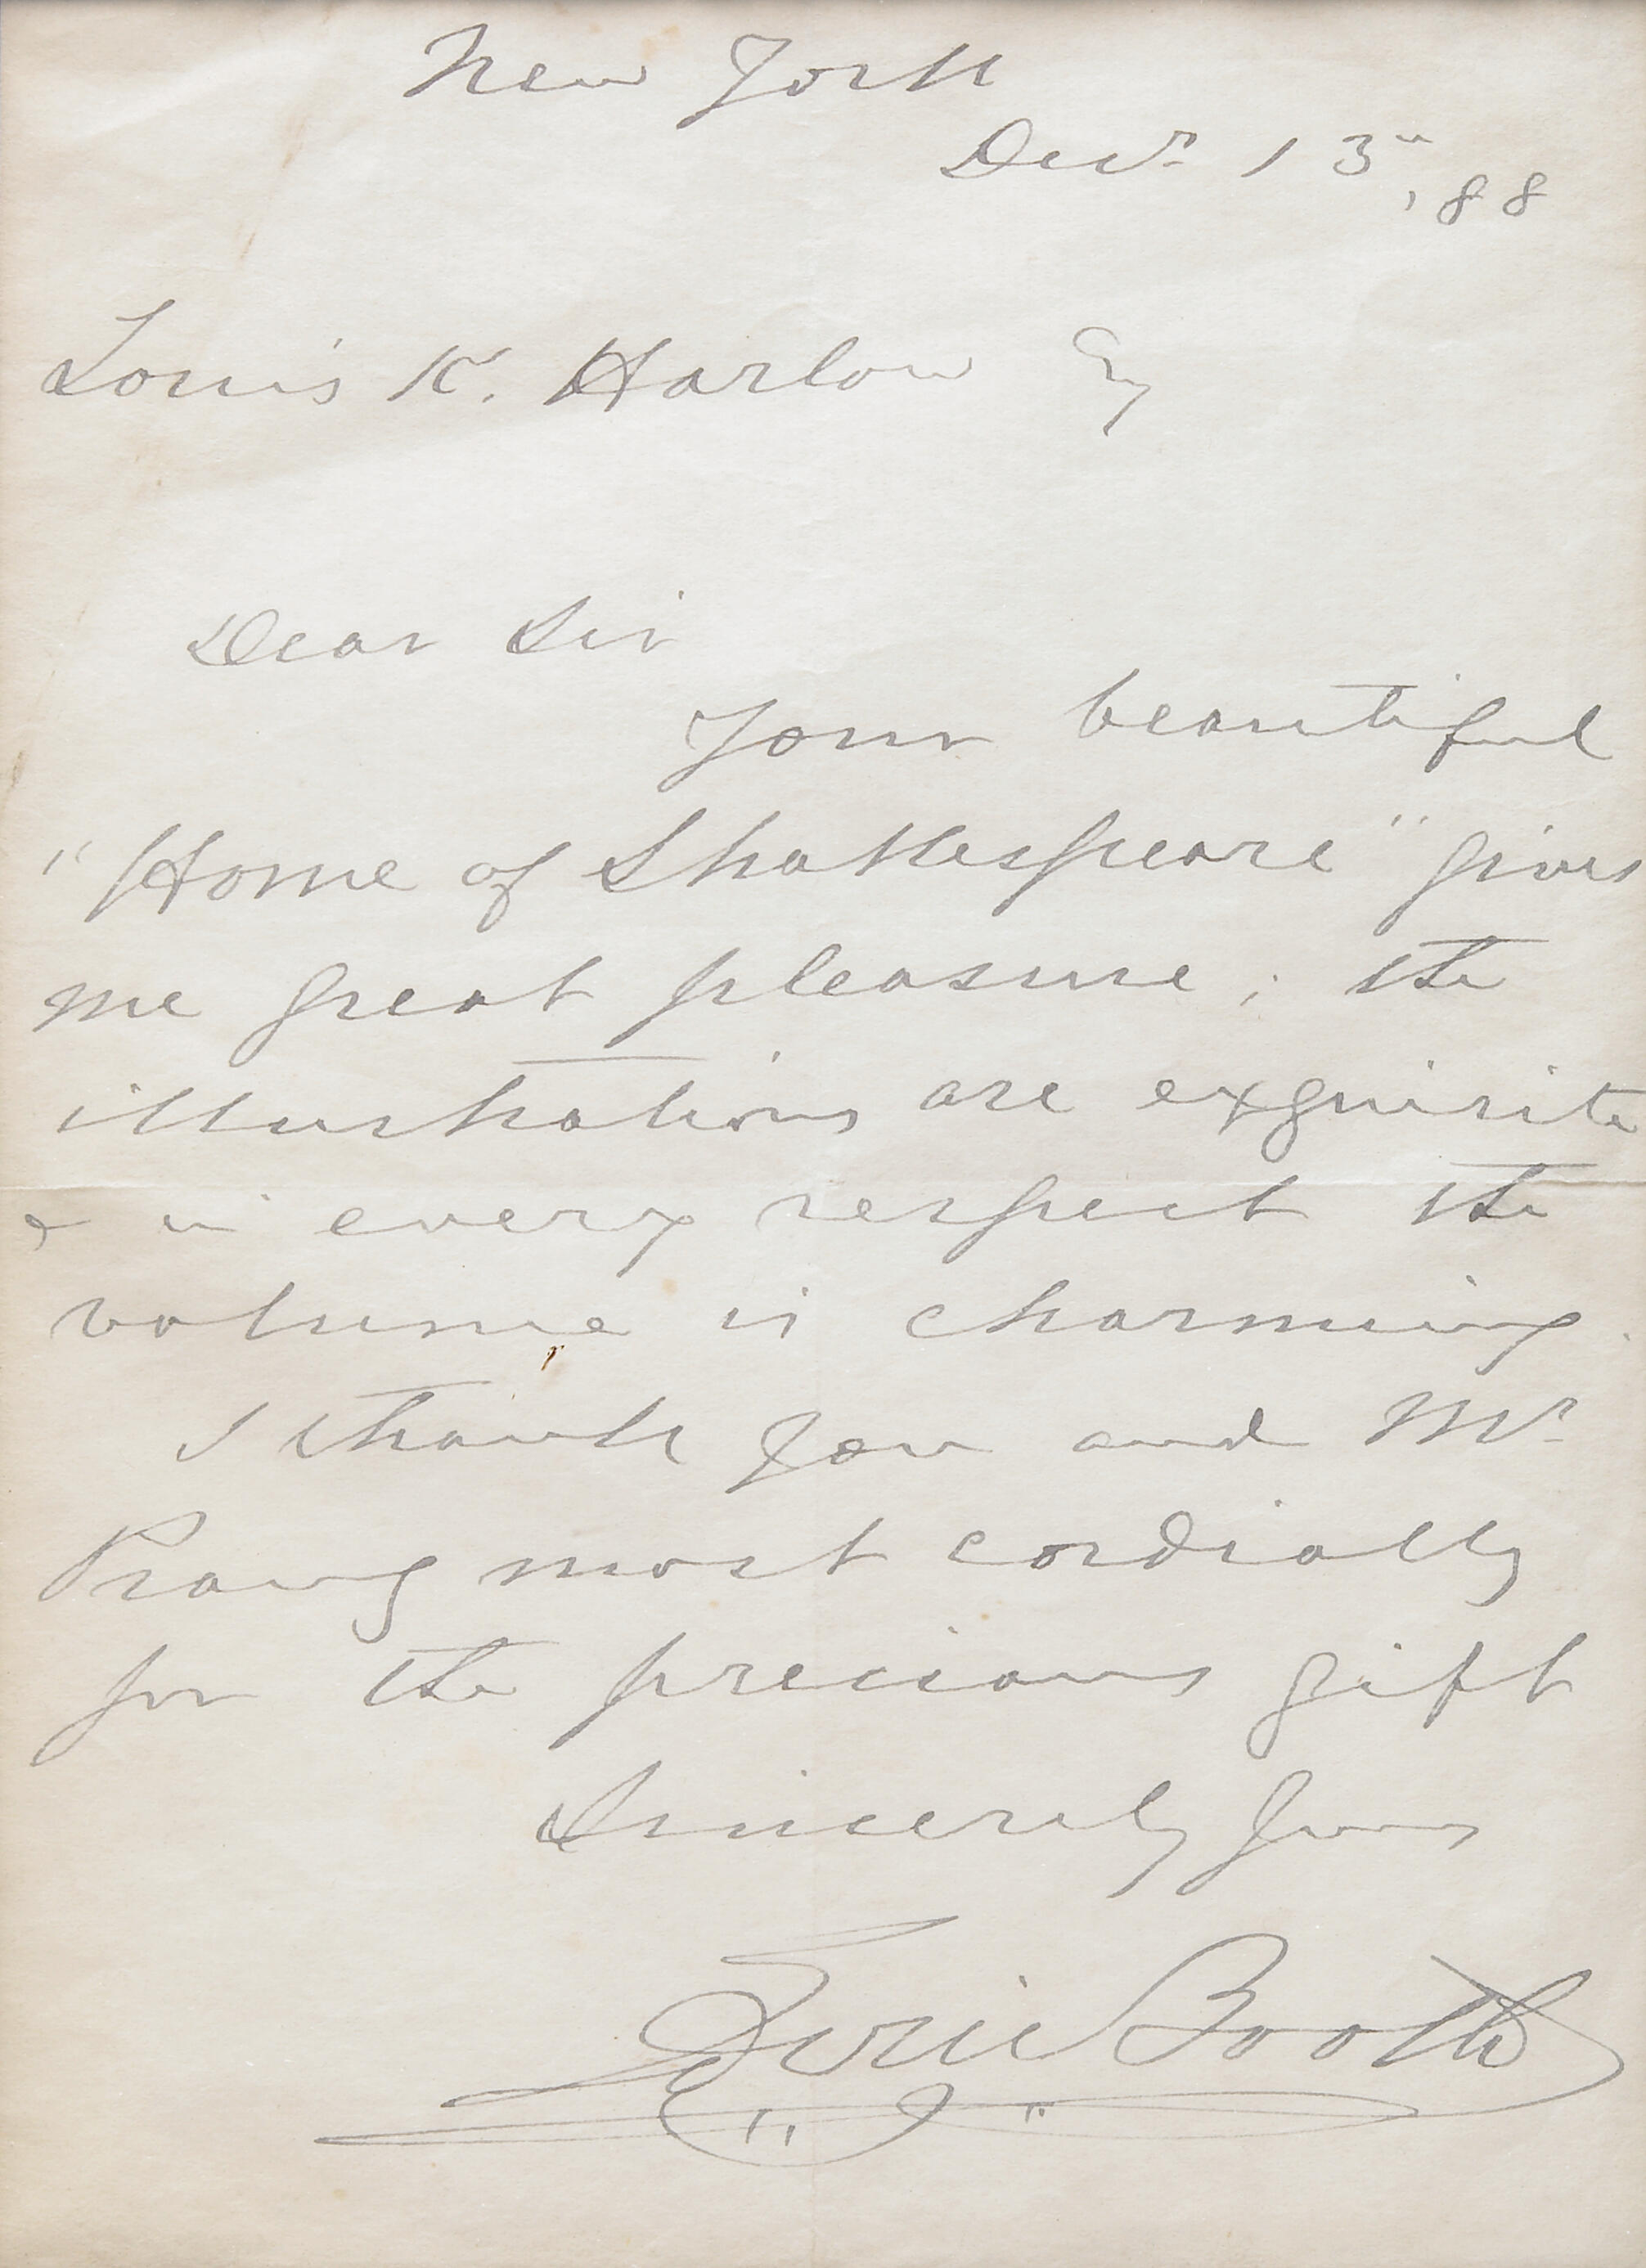 New York
Decr. 13" '88
Louis K. Harlow Esq
Dear Sir
Your beautiful
"Home of Shakespeare" gives
me great pleasure; the
illustrations are exquisite
& in every respect the
volume is charming.
I thank you and Mr.
Prang most cordially
for the precious gift
Sincerely Yours
Edwin Booth